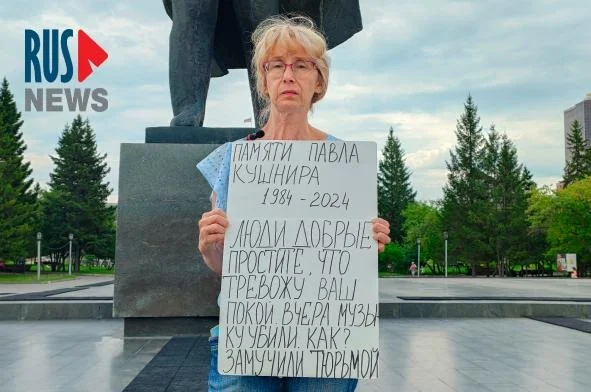 RUS
NEWS
ПАМЯТИ ПАВЛА
КУШНИРА
1984 - 2024
ЛЮДИ ДОБРЫЕ
ПРОСТИТЕ, ЧТО
ТРЕВОЖУ ВАШ
ПОКОЙ. ВЧЕРА МУЗЫ
КУ УБИЛИ. КАК?
ЗАМУЧИЛИ ТЮРЬМОЙ